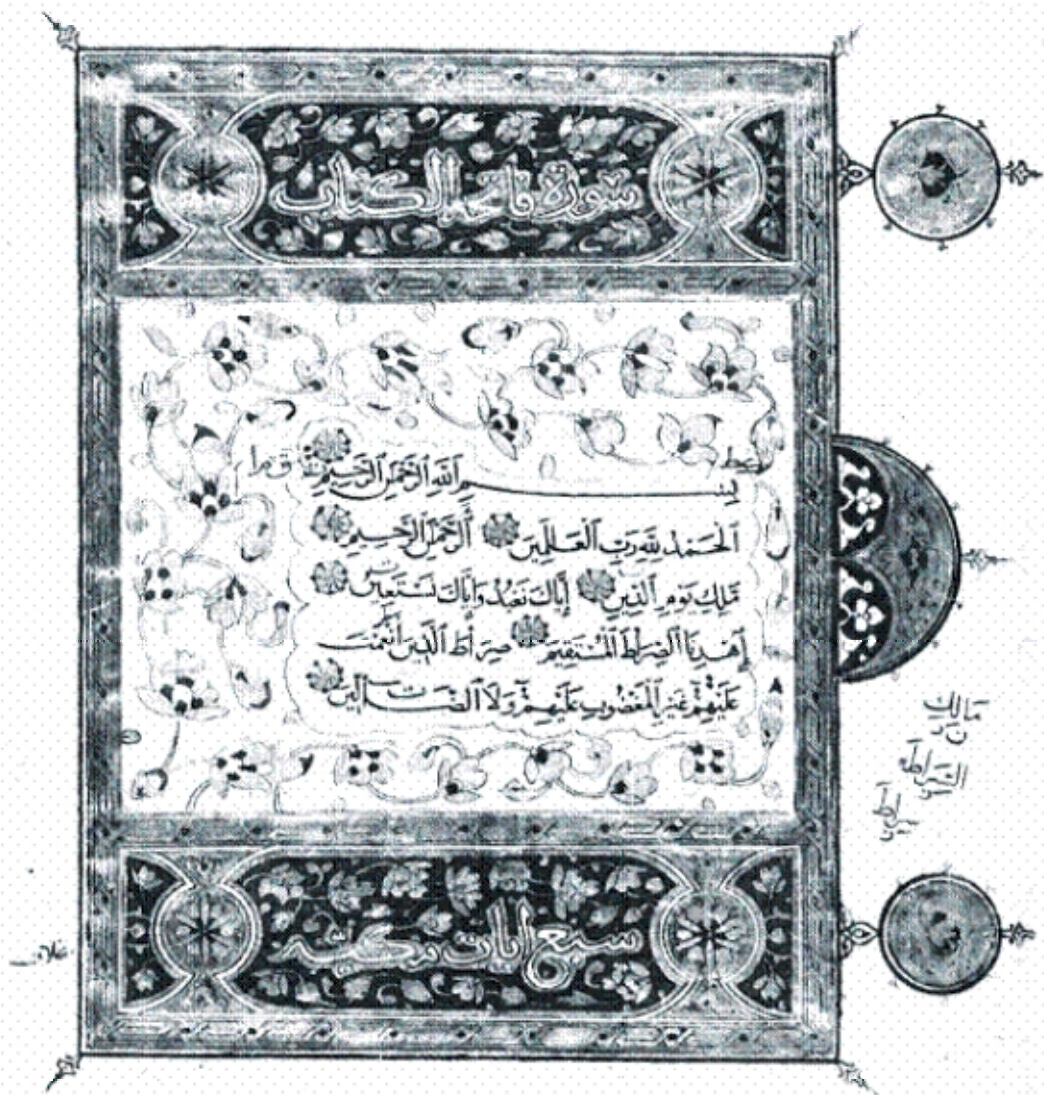 سورة فاتحة الكتاب
بِسْمِ ٱللَّهِ ٱلرَّحْمَٰنِ ٱلرَّحِيمِ
ٱلْحَمْدُ لِلَّهِ رَبِّ ٱلْعَٰلَمِينَ ٱلرَّحْمَٰنِ ٱلرَّحِيمِ
مَٰلِكِ يَوْمِ ٱلدِّينِ إِيَّاكَ نَعْبُدُ وَإِيَّاكَ نَسْتَعِينُ
ٱهْدِنَا ٱلصِّرَٰطَ ٱلْمُسْتَقِيمَ صِرَٰطَ ٱلَّذِينَ أَنْعَمْتَ
عَلَيْهِمْ غَيْرِ ٱلْمَغْضُوبِ عَلَيْهِمْ وَلَا ٱلضَّآلِّينَ
مَالِكِ
السراط
سراط
سبع ايات مكية